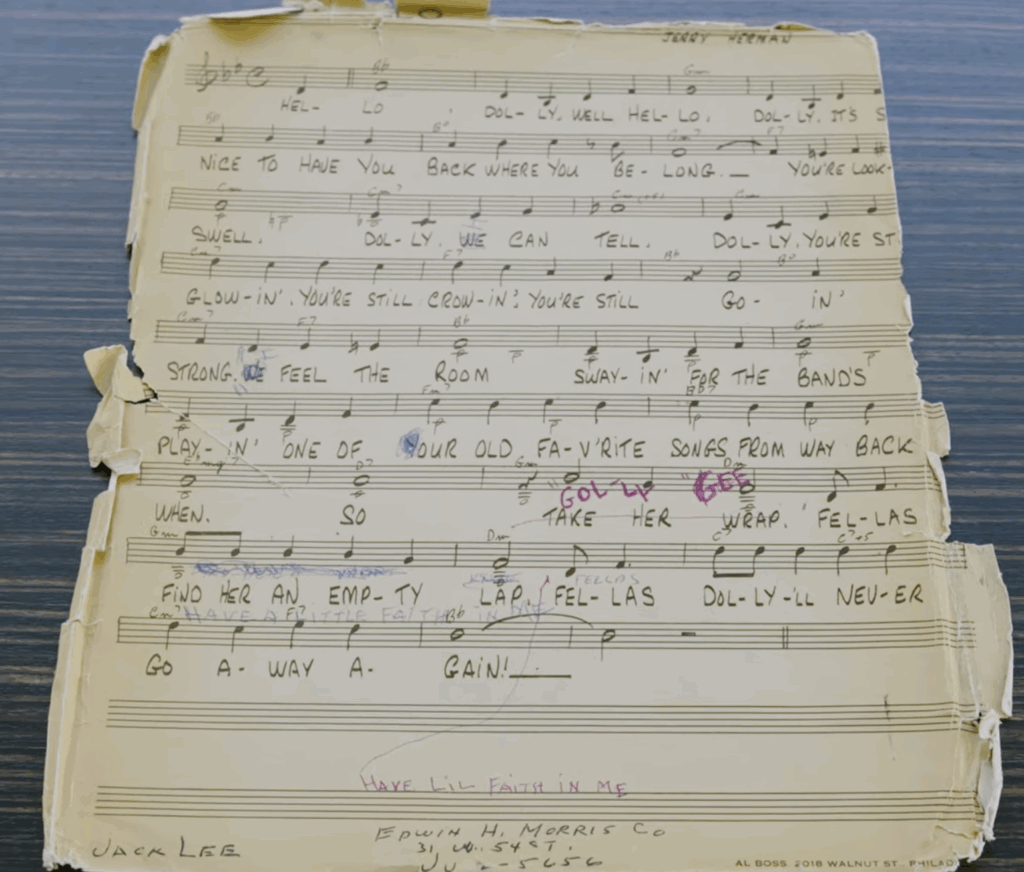 JERRY HERMAN
Bb Gm
HEL- LO . DOL- LY. WELL HEL- LO. DOL- LY. IT'S S
NICE TO HAVE YOU BACK WHERE YOU BE - LONG. — YOU'RE LOOK-
SWELL. DOL- LY. WE CAN TELL. DOL- LY. YOU'RE ST
Cm7 F7 Bb
GLOW-IN'. YOU'RE STILL CROW-IN'. YOU'RE STILL GO- IN'
Cm7 F7 Bb Gm
STRONG. WE FEEL THE ROOM SWAY- IN' FOR THE BAND'S
Fm7 Bb7
PLAY- IN' ONE OF YOUR OLD FA- V'RITE SONGS FROM WAY BACK
D7 Gm Dm
"GOL-LY "GEE
WHEN. SO TAKE HER WRAP. FEL-LAS
Gm Dm C7 C7+5
FELLAS
FIND HER AN EMP-TY LAP. FEL-LAS DOL-LY-'LL NEV-ER
HAVE A LITTLE FAITH IN ME
Cm7 F7 Bb
GO A- WAY A- GAIN!
HAVE LIL FAITH IN ME
EDWIN H. MORRIS CO
JACK LEE
31 W. 54 ST.
JU 2-5656
AL BOSS 2018 WALNUT ST., PHILAD